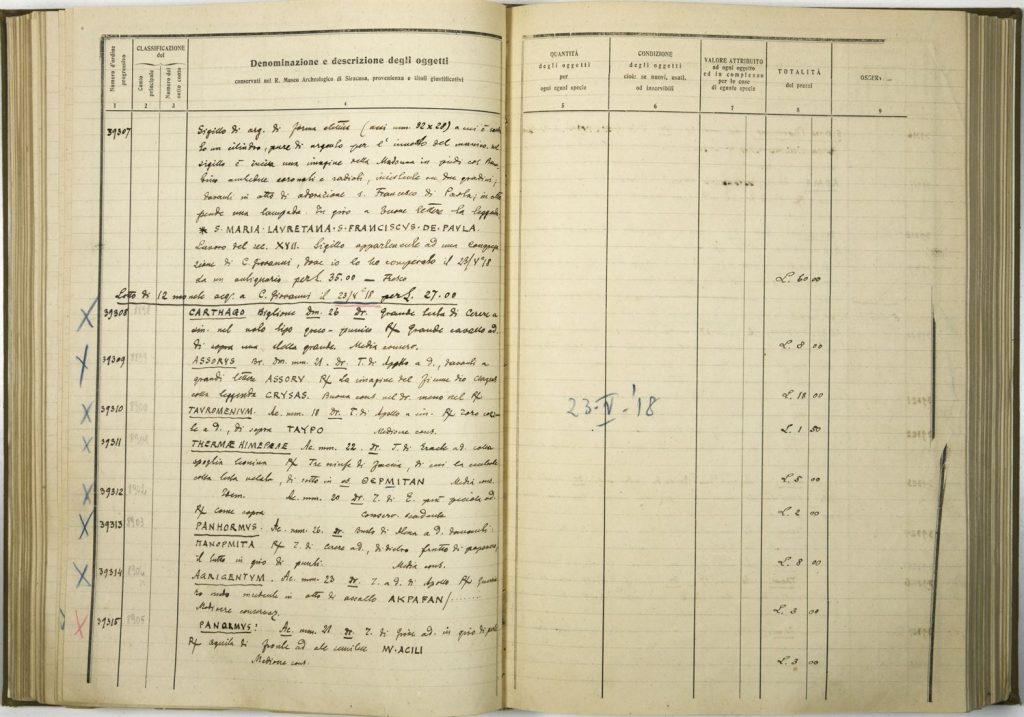 Numero d'ordine progressivo
CLASSIFICAZIONE del
Conto principale
Numero del sotto conto
Denominazione e descrizione degli oggetti
conservati nel R. Museo Archeologico di Siracusa, provenienza e titoli giustificativi
1 2 3 4
39307
Sigillo di arg. di forma (assi mm. 32 x 28) a cui è
un cilindro, pure di argento per l' del manico. nel
sigillo è incisa una imagine della Madonna in piedi col
coronati e radiati, su due gradini;
davanti in atto di adorazione s. Francesco di Paola; in alto
pende una lampada. In giro a buone lettere la leggenda
* S. MARIA · LAVRETANA · S · FRANCISCVS · DE · PAVLA.
Lavoro del sec. XVII. Sigillo appartenente ad una
di C. Giovanni, dove io lo ho comperato il 23/V° 18
da un antiquario per L. 35.00 —
Lotto di 12 monete acq. a C. Giovanni il 23/V° 18 per L. 27.00
39308
CARTHAGO Biglione Dm. 26 Dr. Grande testa di Cerere a
sin. nel noto tipo greco-punico R/ Grande cavallo ad.
di sopra una stella grande. Media conserv.
39309
ASSORVS Br. Dm. mm. 21. Dr. T. di Apollo a d., davanti a
grandi lettere ASSORV. R/ La imagine del fiume dio
colla leggenda CRYSAS. Buona cons. nel dr. meno nel R/
39310
TAVROMENIVM. Ae. mm. 18 Dr. T. di Apollo a sin. R/ Toro
a d., di sopra ΤΑΥΡΟ Mediocre cons.
39311
THERMÆ HIMERAE Ae mm. 22. Dr. T. di Eracle ad. colla
spoglia leonina R/ Tre ninfe di faccia, di cui la centrale
colla testa velata, di sotto in es. ΘΕΡΜΙΤΑΝ Media cons.
39312
Idem. Ae. mm. 20 Dr. T. di E. più piccola ad.
R/ come sopra conserv. scadente
39313
PANHORMVS. Ae. mm. 26. Dr. Busto di a d.
ΠΑΝΟΡΜΙΤΑ R/ T. di Cerere ad., di dietro frutto di papavero,
il tutto in giro di punti. Media cons.
39314
AGRIGENTVM. Ae. mm. 23 Dr. T. a d. di Apollo R/
nudo in atto di assalto ΑΚΡΑΓΑΝ/.......
Mediocre conservaz.
39315
PANORMVS: Ae. mm. 21 Dr. T. di ad. in giro di
R/ aquila di fronte ad ale M·ACILI
Mediocre cons.
QUANTITÀ degli oggetti per ogni specie
CONDIZIONE degli oggetti cioè: se nuovi, usati, od inservibili
VALORE ATTRIBUITO ad ogni oggetto ed in complesso per le cose di eguale specie
TOTALITÀ dei prezzi
OSSERV
5 6 7 8 9
L. 60 00
L. 8 00
23-IV-'18
L. 18 00
L. 1 50
L. 5 00
L. 2 00
L. 8 00
L. 3 00
L. 3 00